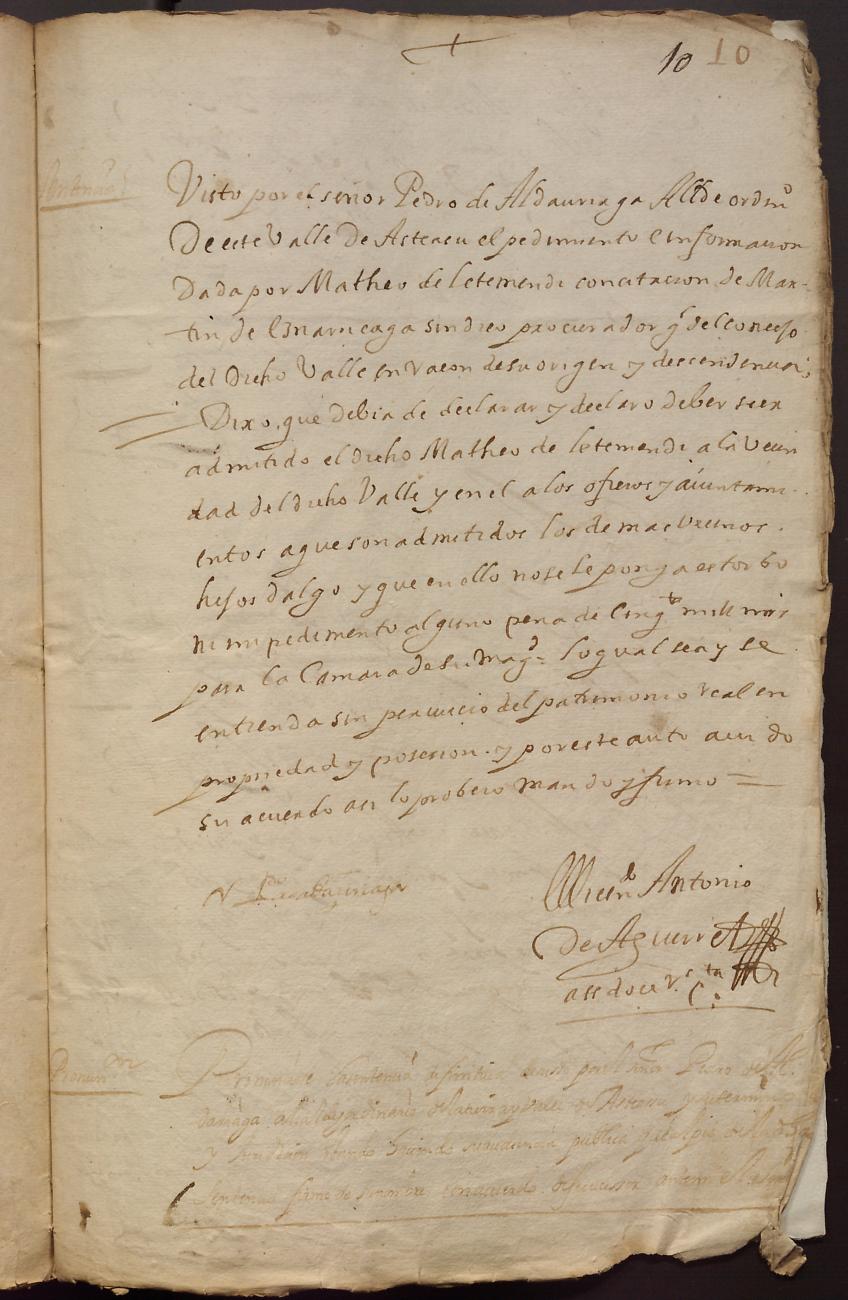 10 10
Sentencia
Visto por el señor Pedro de Aldaurriaga Allde ordinº
De este Valle De Asteasu el pedimiento e informacion
Dada por Matheo de letemendi con citacion de Mar-
tin de sindico procurador gl del concejo
del Dicho Valle en raçon de su origen y descendencia;
Dixo, que debia de declarar y declaro deber seer
admitido el dicho Matheo de letemendi a la Vecin
dad del dicho Valle y en el a los oficios y aiuntami-
entos a que son admitidos los demas vecinos
hijos dalgo y que en ello no se le ponga estorbo
ni impedimento alguno pena de cinqta mill mrs
para la Camara de su Magd = lo qual sea y se
entienda sin perjuicio del patrimonio real en
propriedad y posesion. y por este auto avido
su acuerdo asi lo probeio mando y firmo =
Pº de Aldaurriaga
Licendo Antonio
De Aguirre
Pronunon
Pronunciose la sentencia difinitiva de suso por el señor Pedro de Al
daurriaga alcalde ordinario de Asteasu y su termino
y juridicion estando haciendo audiencia publica
sentencia firmo de su nombre con acuerdo de su asesor